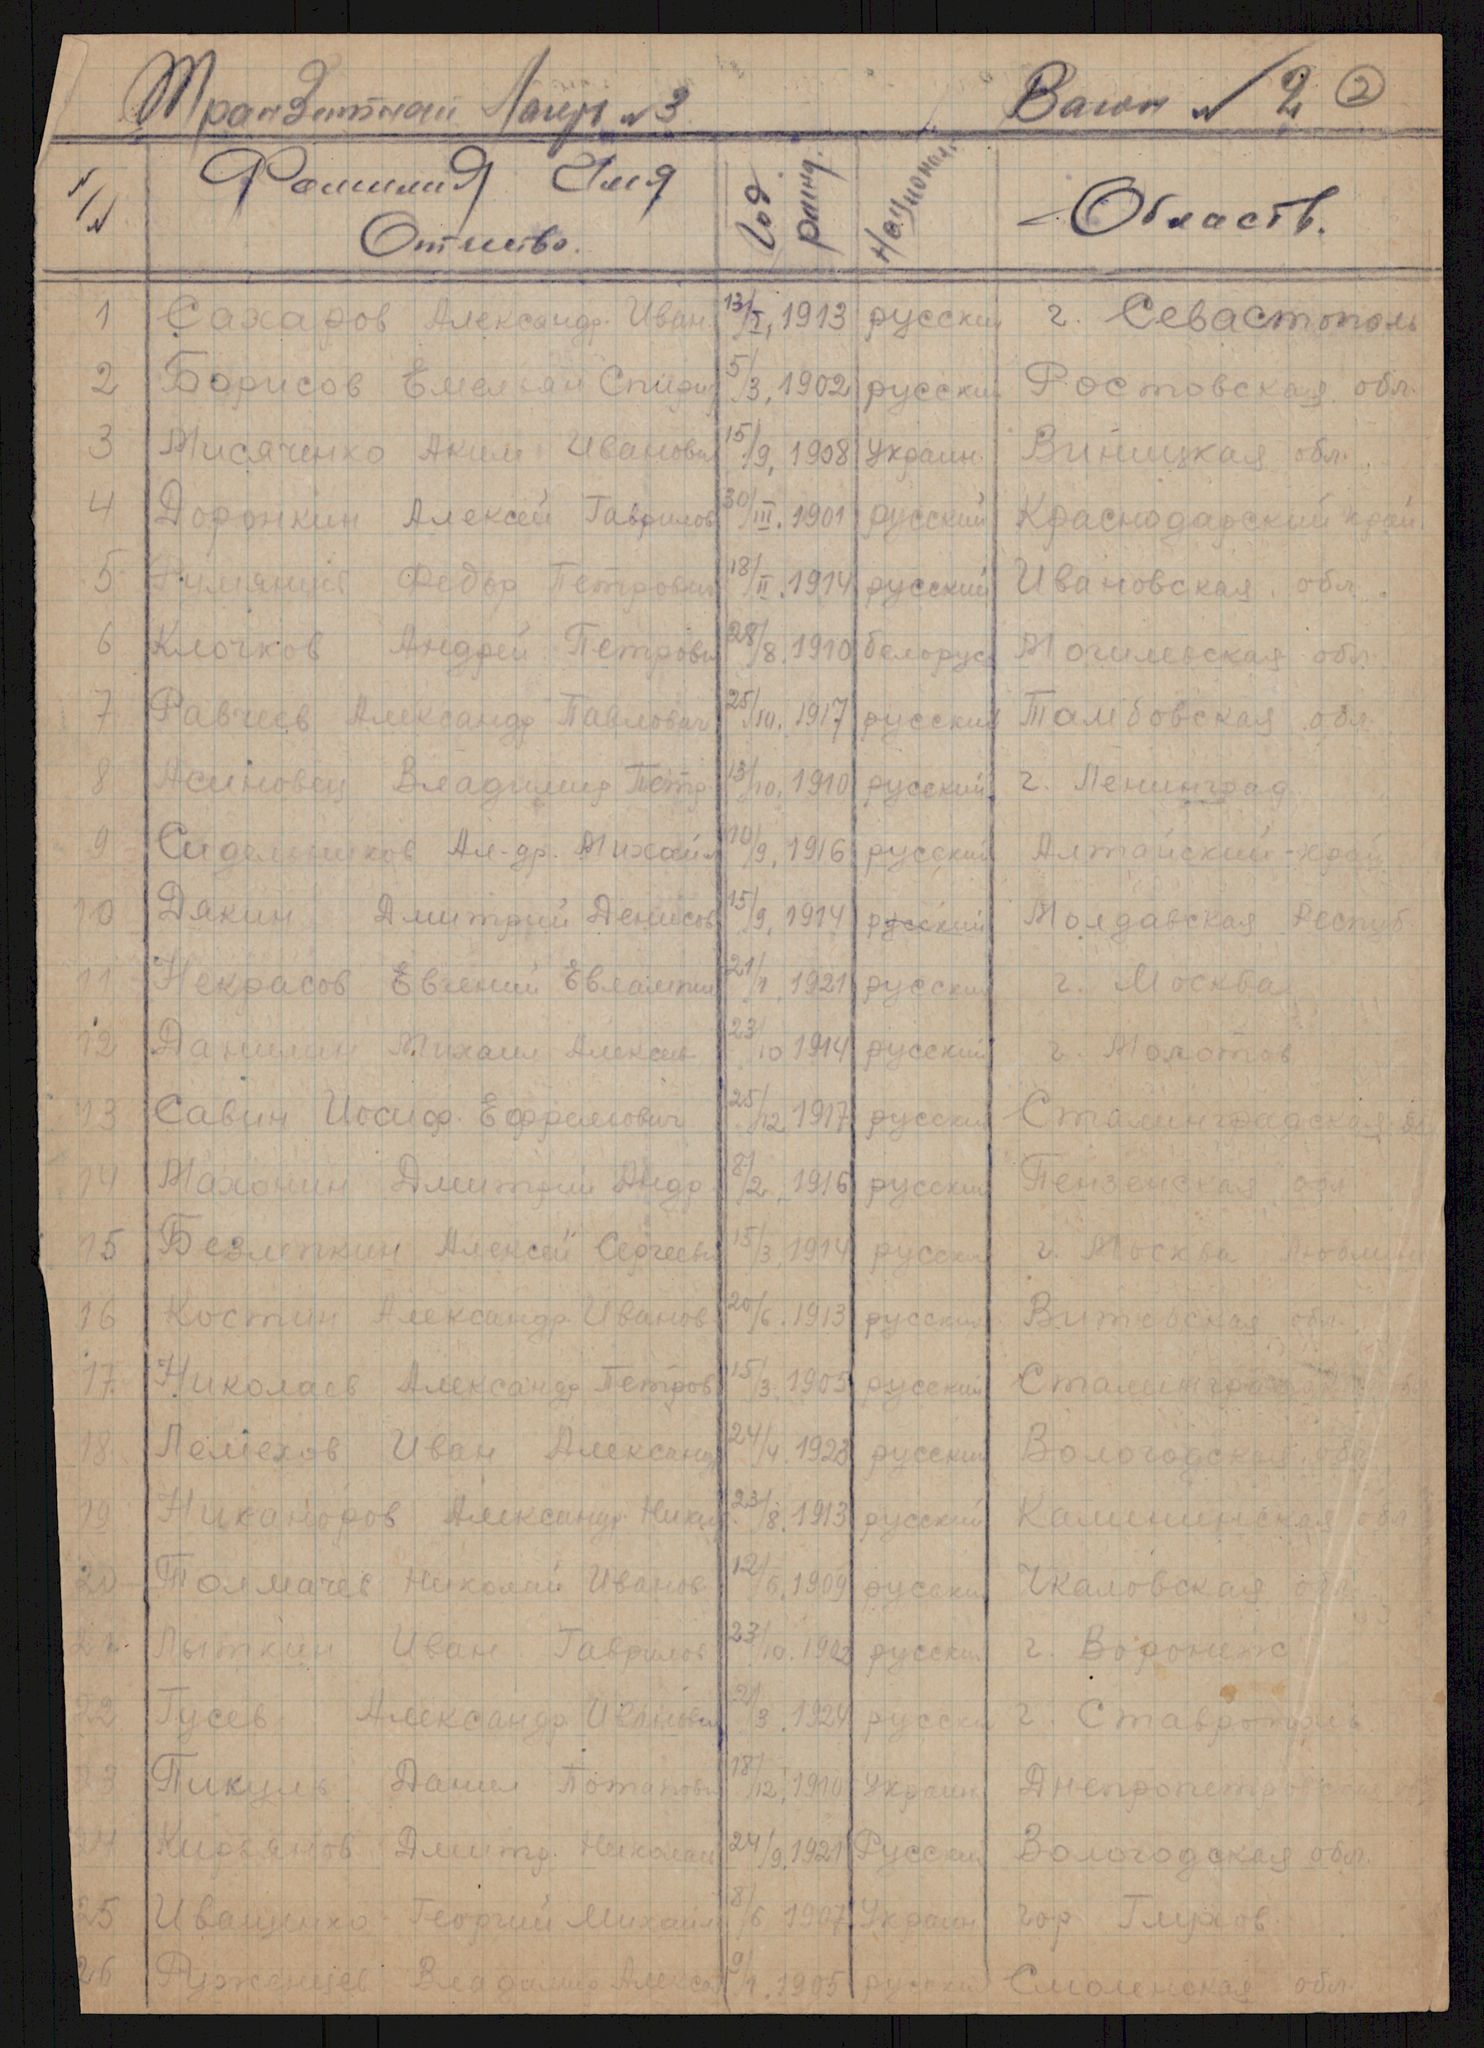 Транзитный Лагерь №3 Вагон № 2 ②
№/№ Фамилия Имя Отчество. Год рожд. Национал. Область.
1 Сахаров Александр Иван. 13/I, 1913 русский г. Севастополь
2 Борисов Емельян Спирид 5/3, 1902 русский Ростовская обл.
3 Мисяченко Аким Иванович 15/9, 1908 Украин. Виницкая обл.
4 Доронкин Алексей Гаврилов 30/III. 1901 русский Краснодарский край.
5 Румянцев Федор Петрович 18/II. 1914 русский Ивановская обл.
6 Клочков Андрей Петрович 28/8. 1910 белорус Могилевская обл.
7 Равчеев Александр Павлович 25/10. 1917 русский Тамбовская обл.
8 Асиновец Владимир Петр 13/10, 1910 русский г. Ленинград
9 Сидельников Ал-др. Михайл 10/9, 1916 русский Алтайский-край
10 Дякин Дмитрий Денисов 15/9, 1914 русский Молдавская Респуб.
11 Некрасов Евгений Евлампи 21/1, 1921 русский г. Москва
12 Данилин Михаил Алексеев 23/10 1914 русский г. Молотов
13 Савин Иосиф Ефремович 25/12 1917 русский Сталинградская
14 Маханин Дмитрий Андр 8/2, 1916 русский Пензенская обл
15 Безлепкин Алексей Сергееви 15/3, 1914 русский г. Москва Люблин
16 Костин Александр Иванов 20/6. 1913 русский Витебская обл.
17 Николаев Александр Петров 15/3. 1905 русский Сталинград
18 Лемехов Иван Александ 24/4. 1923 русский Вологодская обл
19 Никаноров Александр Никол 23/8. 1913 русский Калининская обл
20 Толмачев Николай Иванов 12/5. 1909 русский Чкаловская обл.
21 Лыткин Иван Гаврилов 23/10. 1902 русский г. Воронеж
22 Гусев Александр Иванович 2/3. 1924 русски г. Ставрополь
23 Пикуль Данил Потапови 18/12, 1910 Украин. Днепропетровская
24 Кирьянов Дмитр. Николаев 24/9. 1921 Русский Вологодская обл.
25 Иващенко Георгий Михайл 8/6 1907 Украин гор Глухов
26 Руженцев Владимир Алекса 9/1. 1905 русский Смоленская обл.